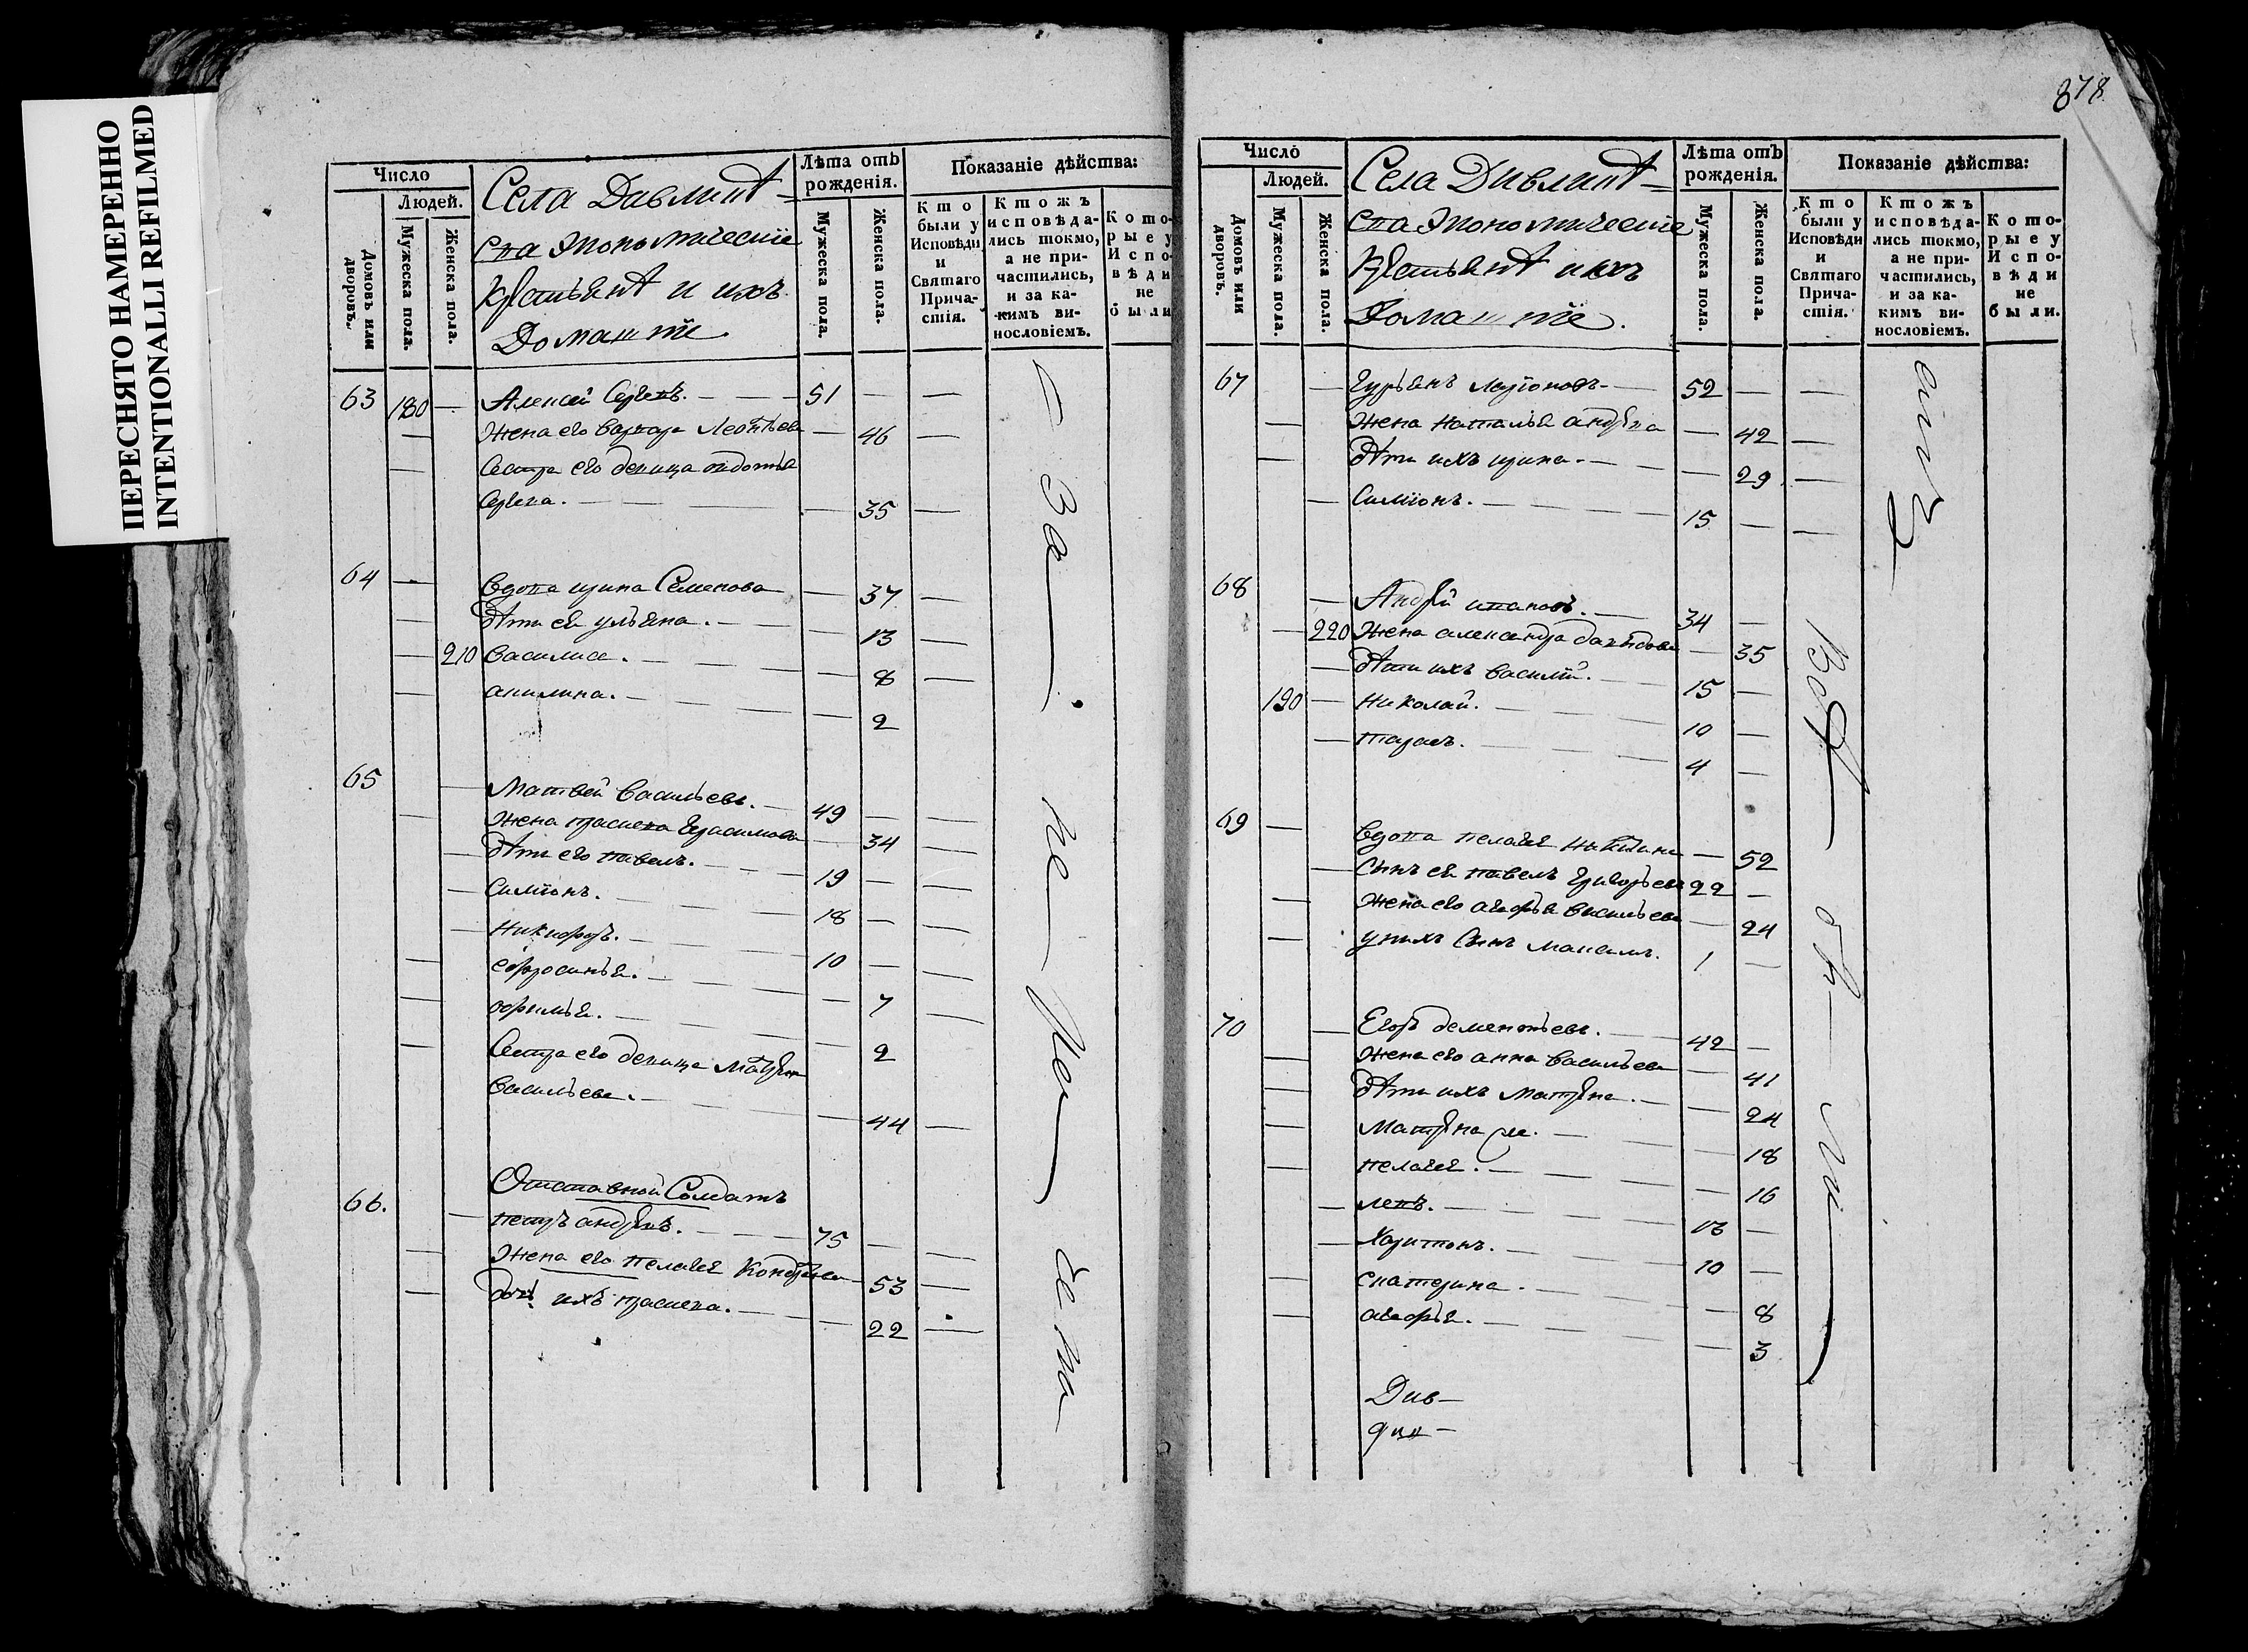 ПЕРЕСНЯТО НАМЕРЕННО
INTENTIONALLI REFILMED
Число
Людей.
Домовъ или дворовъ.
Мужеска пола.
Женска пола.
Села
экономическіе
крестьянѣ и ихъ
Домашніе
Лѣта отъ рожденія.
Мужеска пола.
Женска пола.
Показаніе дѣйства:
Кто были у Исповѣди и Святаго Причастія.
Ктожъ исповѣдались токмо, а не причастились, и за какимъ винословіемъ.
Которые у Исповѣди не были
63 180 — Алексей Сергѣевъ. — 51 — —
— Жена его варвара Леонтьева — 46 —
— Сестра его девица авдотья
Сергѣева. — — 35 —
64 — Вдова ирина Семенова — 37 —
— дѣти ея ульяна. — — 13 —
— 210 василиса. — — 8 —
— акилина. — — 2
65 — Матвей васильевъ. — 49 — —
— Жена прасковья Герасимова — 34 —
— дѣти его павелъ. — 19 — —
— Симіонъ. — 18 —
— Никифоръ. — 10 — —
— ефросинья. — — 7 —
— офимья. — — 2
— Сестра его девица матрена
васильева. — — 44 —
Отставной Солдатъ
66. — петръ андреевъ. — 75 — —
— Жена его пелагея — 53 —
— дочь ихъ прасковья. — — 22 —
За
не
ма
878
Число
Людей.
Домовъ или дворовъ.
Мужеска пола.
Женска пола.
Села
экономическіе
крестьянѣ и ихъ
Домашніе.
Лѣта отъ рожденія.
Мужеска пола.
Женска пола.
Показаніе дѣйства:
Кто были у Исповѣди и Святаго Причастія.
Ктожъ исповѣдались токмо, а не причастились, и за какимъ винословіемъ.
Которые у Исповѣди не были.
67 — Гурьянъ — 52 — —
— Жена наталья андреева — 42 —
— дѣти ихъ ирина. — — 29 —
— Симіонъ. — 15 — —
68 — Андрей ивановъ. — 34 —
— 220 Жена александра давыдова — 35
— дѣти ихъ василій. — 15 —
190 — Николай. — 10 —
— тарасъ. — 4 —
69 — вдова пелагея никитина — 52
— Сынъ ея павелъ Григорьевъ 22 —
— Жена его агафья васильева — 24
— у нихъ Сынъ максимъ. 1 —
70 — Егоръ дементьевъ. — 42 —
— Жена его анна васильева — 41
— дѣти ихъ матрена. — — 24
— матрена — — 18
— пелагея. — — 16
— левъ. — 13 —
— Харитонъ. — 10 —
— екатерина. — — 8
— агафья. — — 3
Див—